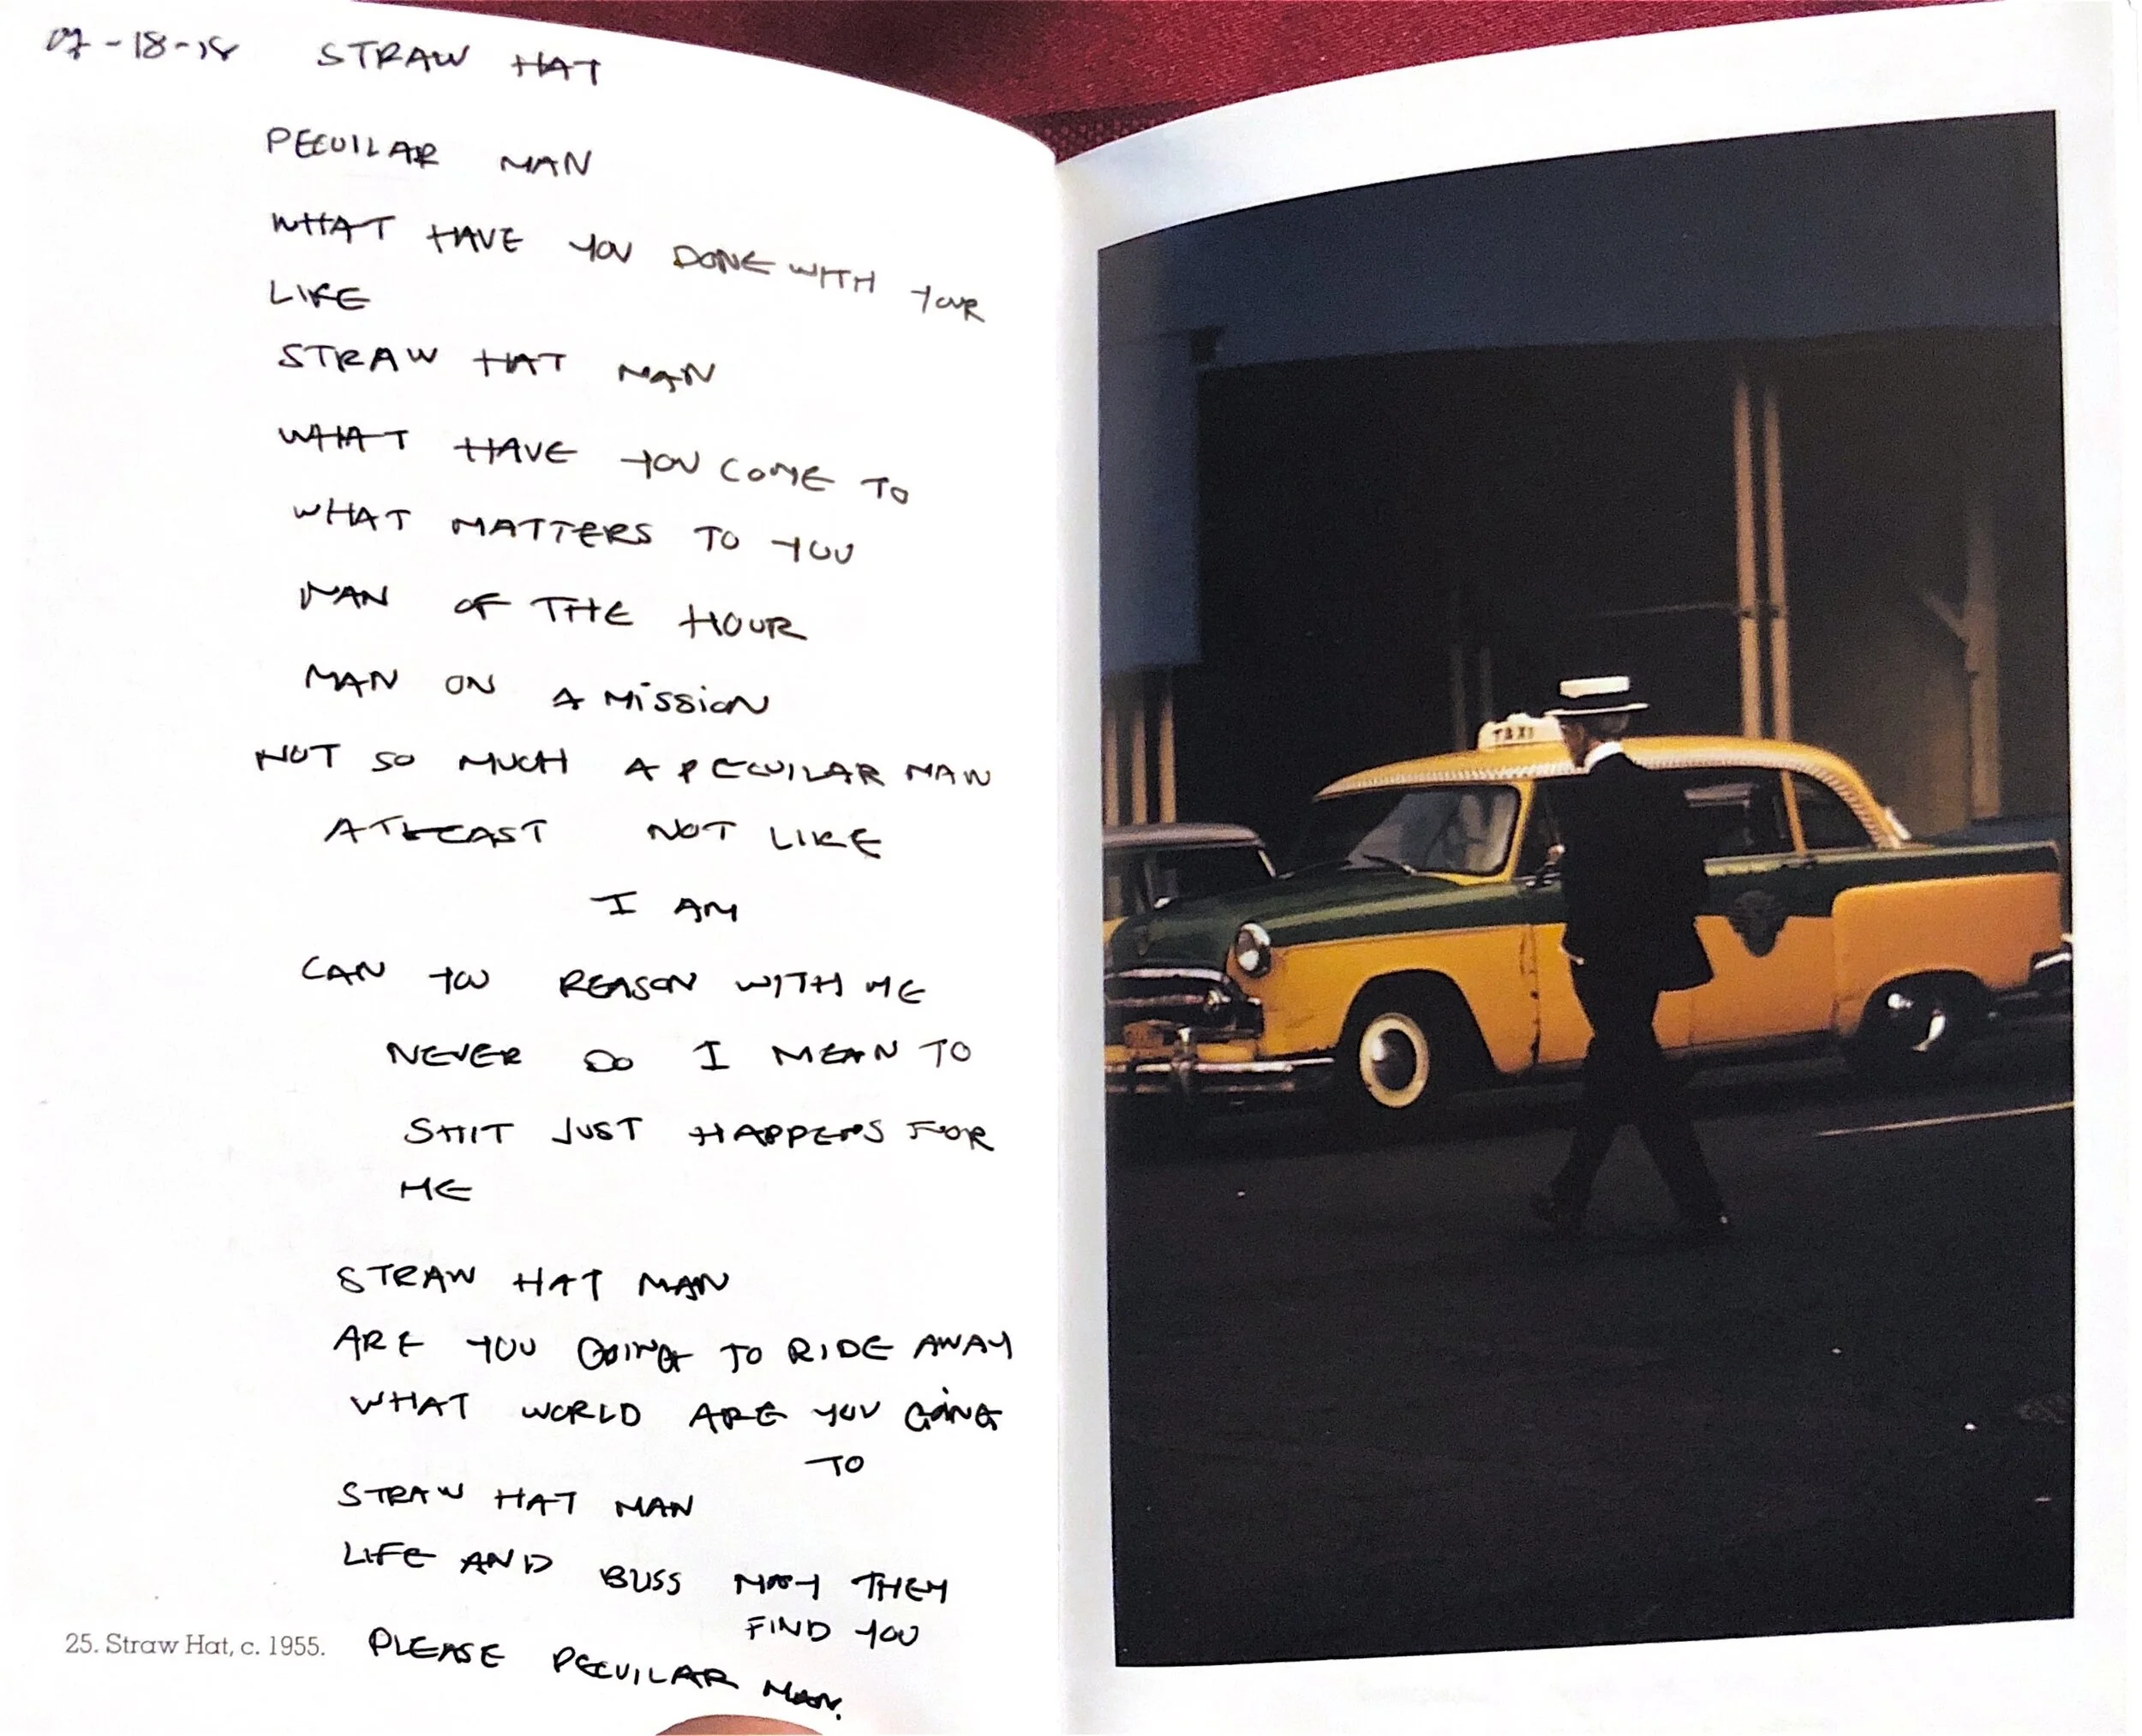 07-18-18 STRAW HAT
PECUILAR MAN
WHAT HAVE YOU DONE WITH YOUR
LIFE
STRAW HAT MAN
WHAT HAVE YOU COME TO
WHAT MATTERS TO YOU
MAN OF THE HOUR
MAN ON A MISSION
NOT SO MUCH A PECUILAR MAN
ATLEAST NOT LIKE
I AM
CAN YOU REASON WITH ME
NEVER DO I MEAN TO
SHIT JUST HAPPENS FOR
ME
STRAW HAT MAN
ARE YOU GOING TO RIDE AWAY
WHAT WORLD ARE YOU GOING
TO
STRAW HAT MAN
LIFE AND BLISS MAY THEY
FIND YOU
PLEASE PECUILAR MAN.
25. Straw Hat, c. 1955.
TAXI